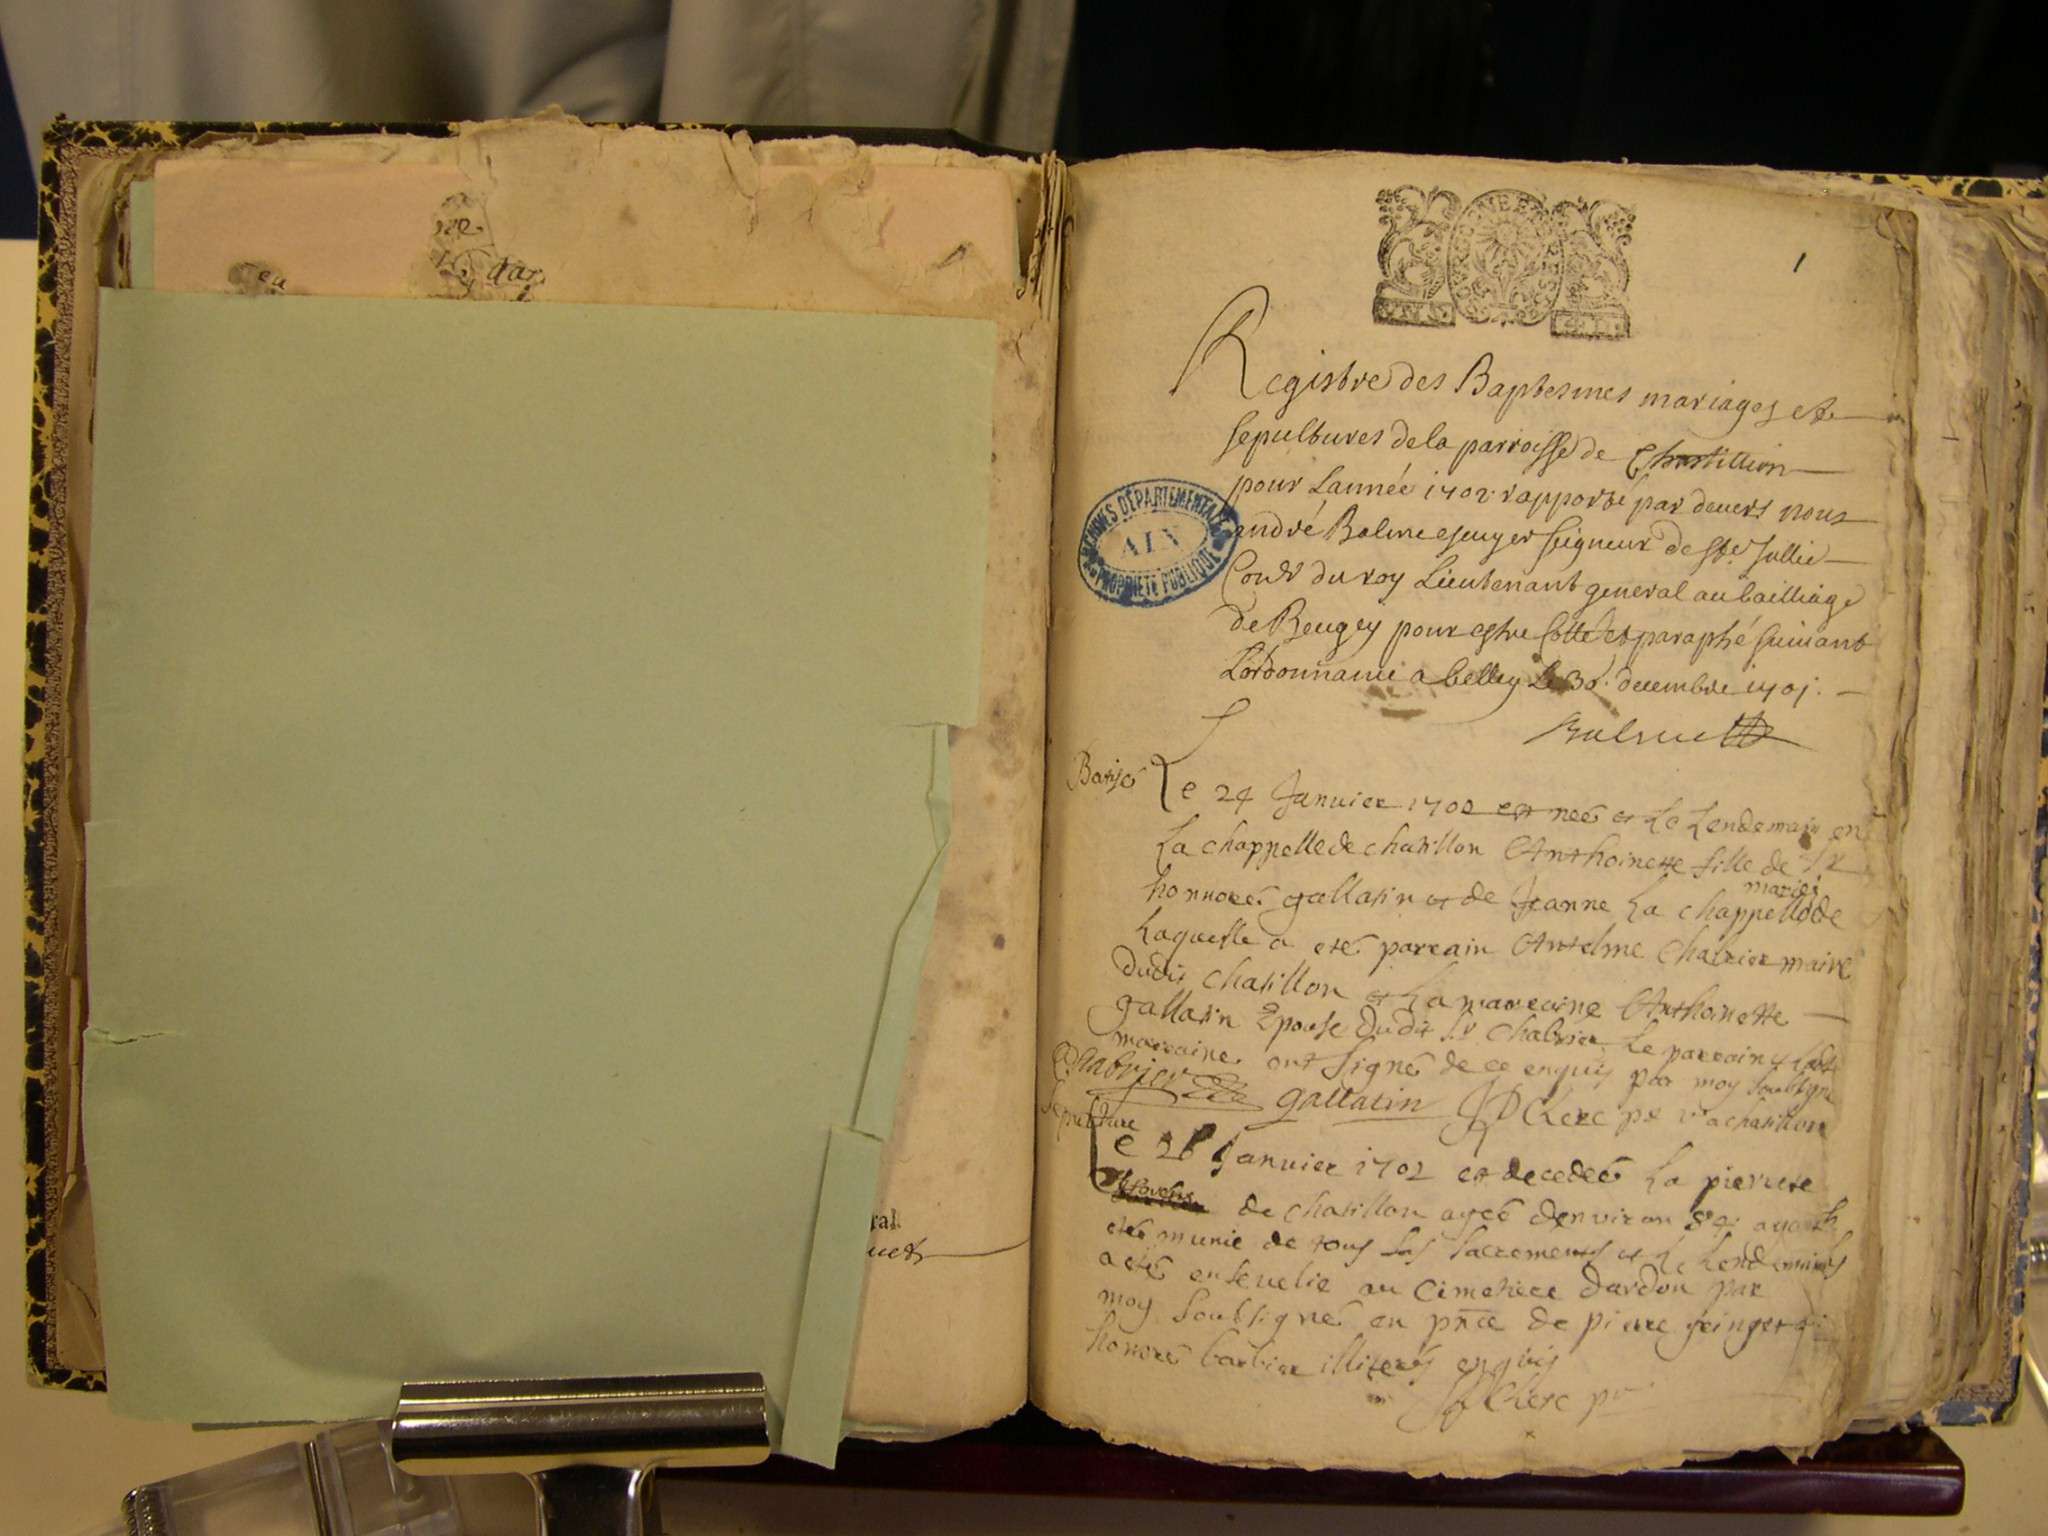 dar
ral
1
Registre des Baptesmes mariages et
sepultures de la parroisse de Chastillion
pour Lannée 1702 rapporté par devers nous
André Balme escuyer seigneur de Ste Jullie
Conslr du roy Lieutenant general au bailliage
de Beugey pour estre Cotté et paraphé suivant
Lordonnance a belley le 30. decembre 1701.
ARCHIVES DÉPARTEMENTALES
AIN
PROPRIÉTÉ PUBLIQUE
Balme
Le 24 Janvier 1702 est neé et Le Lendemain en
La chappelle de chatillon Anthoinette fille de Sr
honnoré gallatin et de Jeanne La chappelle de
mariés
Laquelle a eté parrain Antelme Chabrier maire
dudit chatillon et La marraine Anthoinette
gallatin Epouse dudit Sr Chabrier Le parrain et
marraine ont signé de ce enquis par moy soubsigné
Chabrier gallatin Clerc vic a chatillon
Sepulture
Le 26 Janvier 1702 est decedeé La pierrete
de chatillon ageé denviron 84 ayant
eté munie de tous les sacrements et Le Lendemain
a eté ensevelie au Cimetiere dardon par
moy soubsigné en pnce de pierre
honoré barbier illiterés enquis
Clerc